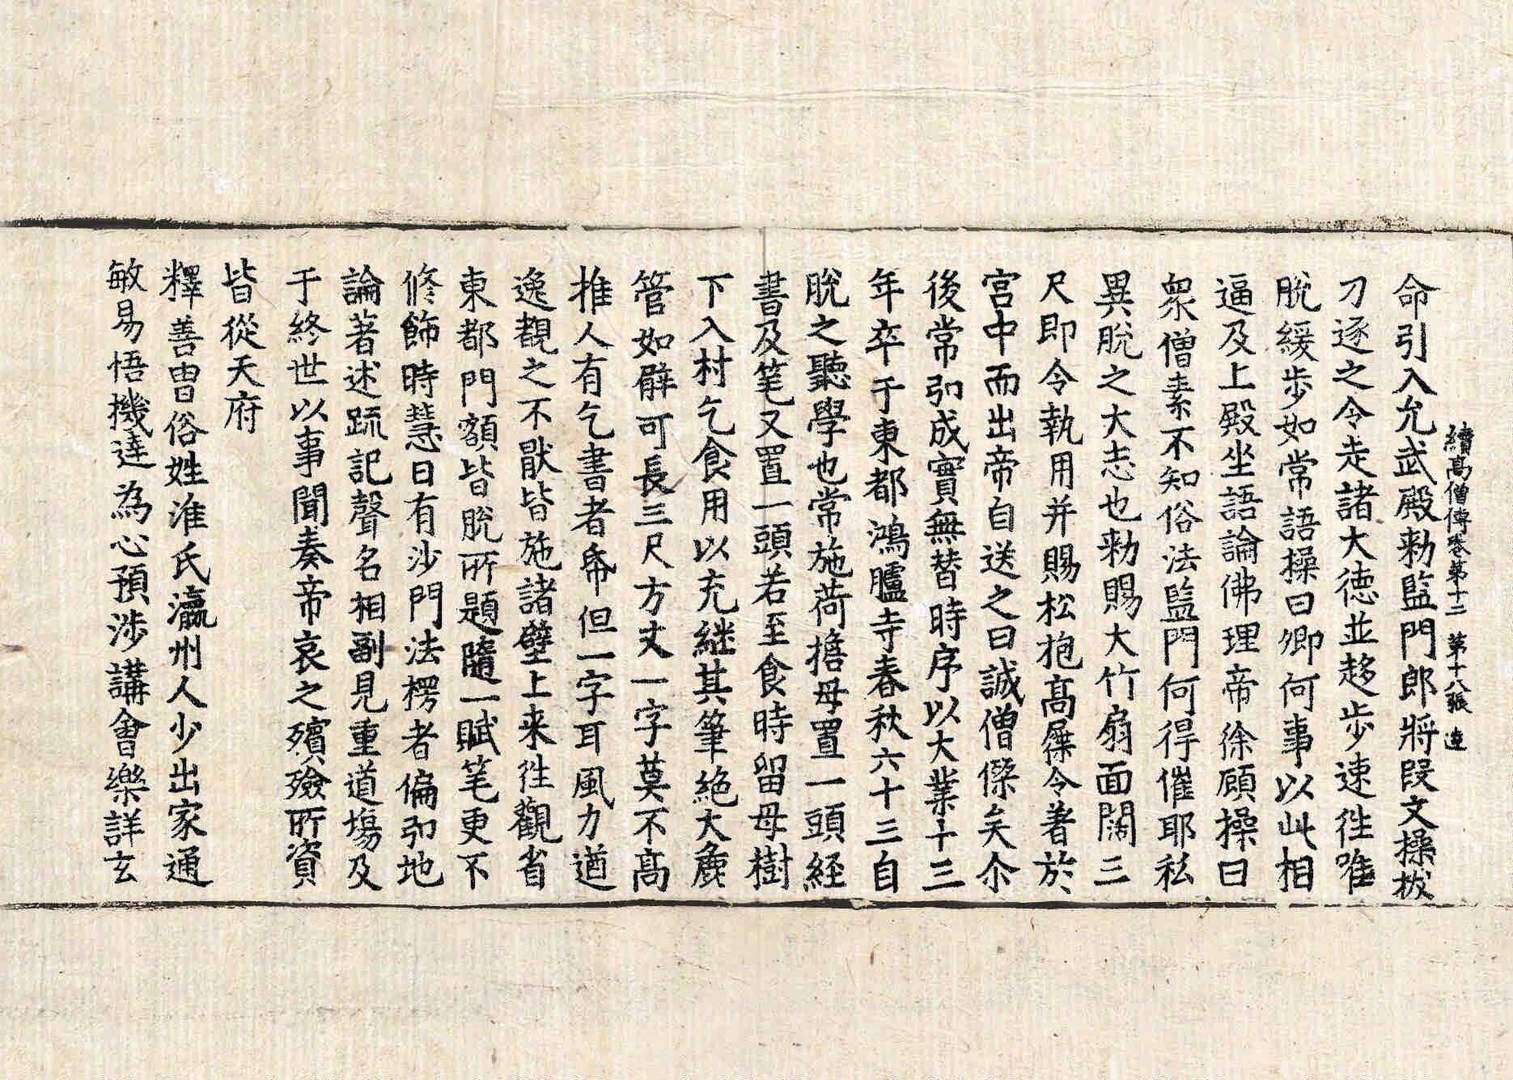 續高僧傳卷第十二　第十八張　達
命引入允武殿勑監門郎將叚文操拔
刀逐之令走諸大德並趍步速徃唯
脫緩步如常語操曰卿何事以此相
逼及上殿坐語論佛理帝徐顧操曰
衆僧素不知俗法監門何得催耶私
異脫之大志也勑賜大竹扇面闊三
尺即令執用并賜松抱高屧令著於
宮中而出帝自送之曰誠僧傑矣尒
後常引成實無替時序以大業十三
年卒于東都鴻臚寺春秋六十三自
脫之聽學也常施荷擔母置一頭經
書及笔又置一頭若至食時留母樹
下入村乞食用以充継其筆絶大麁
管如臂可長三尺方丈一字莫不高
推人有乞書者帋但一字耳風力遒
逸觀之不猒皆施諸壁上来徃觀省
東都門額皆脫所題隨一賦笔更不
修飾時慧日有沙門法楞者偏引地
論著述疏記聲名相副見重道場及
于終世以事聞奏帝哀之殯殮所資
皆從天府
釋善胄俗姓淮氏瀛州人少出家通
敏易悟機達為心預涉講會樂詳玄